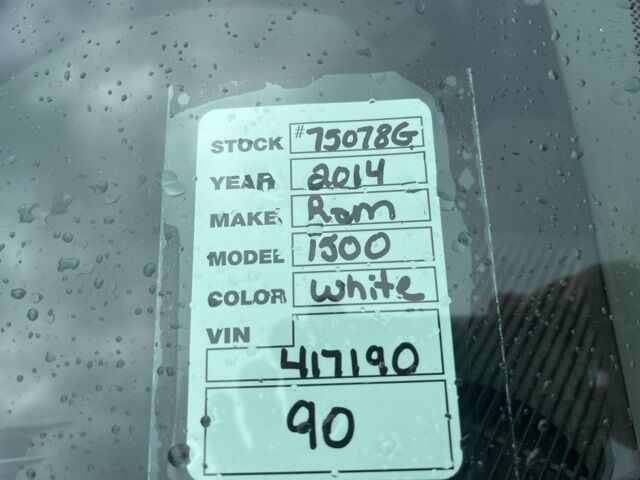 STOCK #75078G
YEAR 2014
MAKE Ram
MODEL 1500
COLOR White
VIN
417190
90